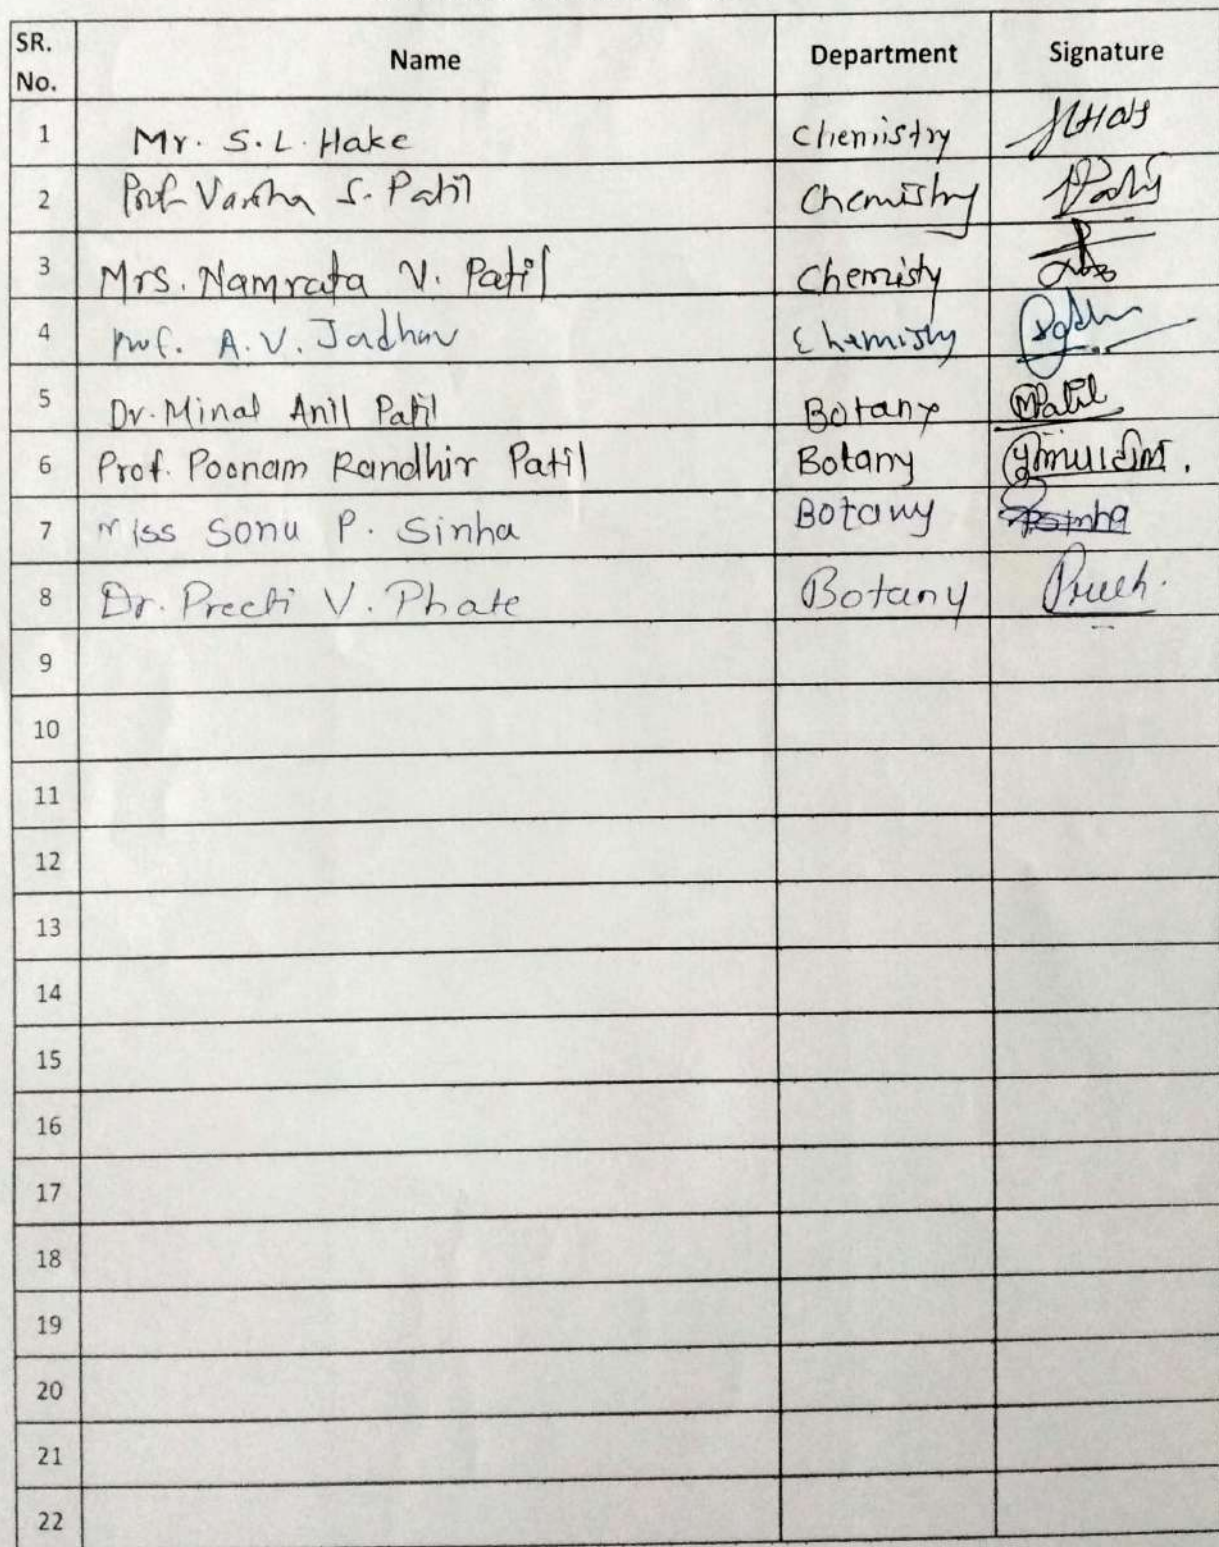 SR. No. Name Department Signature
1 Mr. S. L. Hake Chemistry
2 Prof. Varsha S. Patil Chemistry Patil
3 Mrs. Namrata V. Patil Chemisty
4 Prof. A. V. Jadhav Chemistry
5 Dr. Minal Anil Patil Botany MPatil
6 Prof. Poonam Randhir Patil Botany
7 Miss Sonu P. Sinha Botany
8 Dr. Preeti V. Phate Botany
9
10
11
12
13
14
15
16
17
18
19
20
21
22